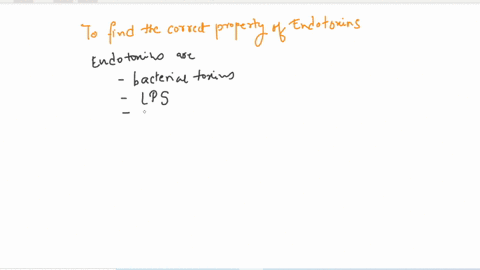 To find the correct property of Endotoxins
Endotoxins are
- bacterial toxins
- LPS
-